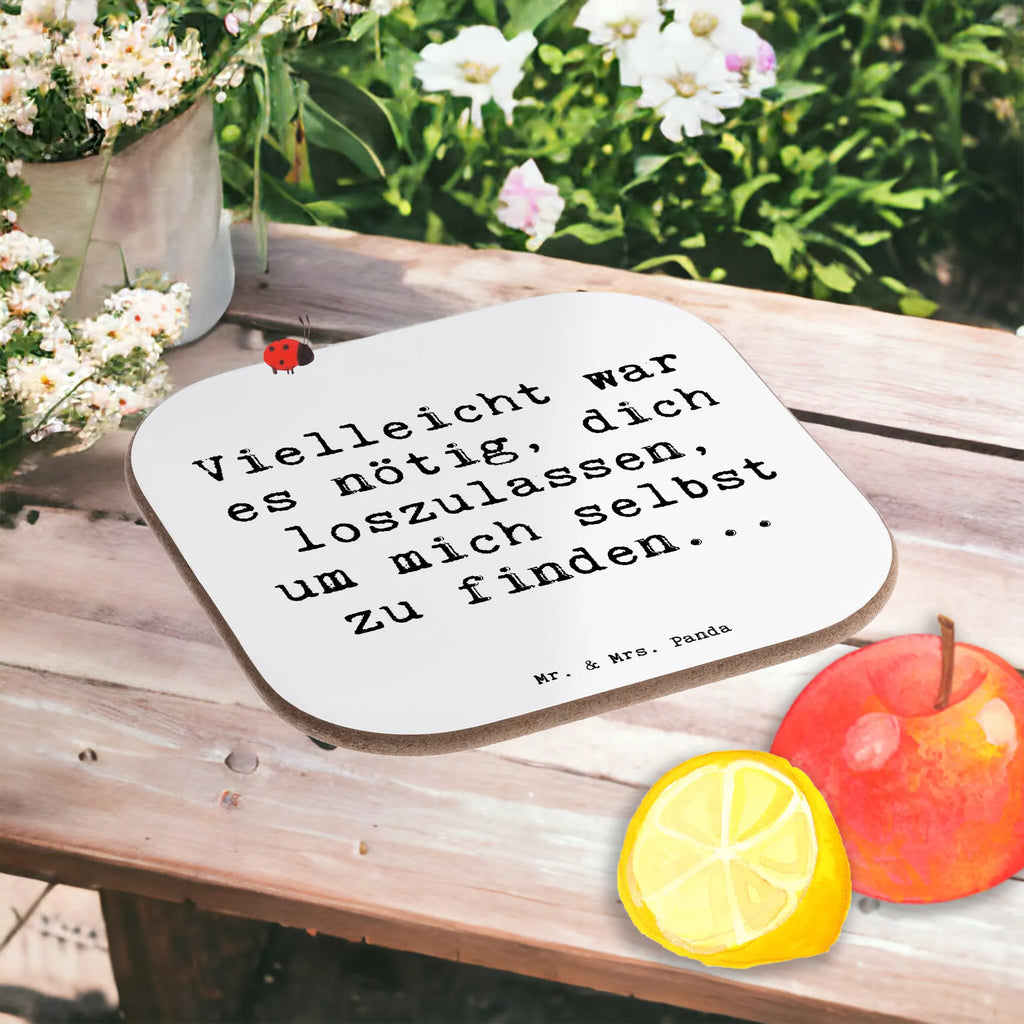 Vielleicht war
es nötig, dich
loszulassen,
um mich selbst
zu finden...
Mr. & Mrs. Panda